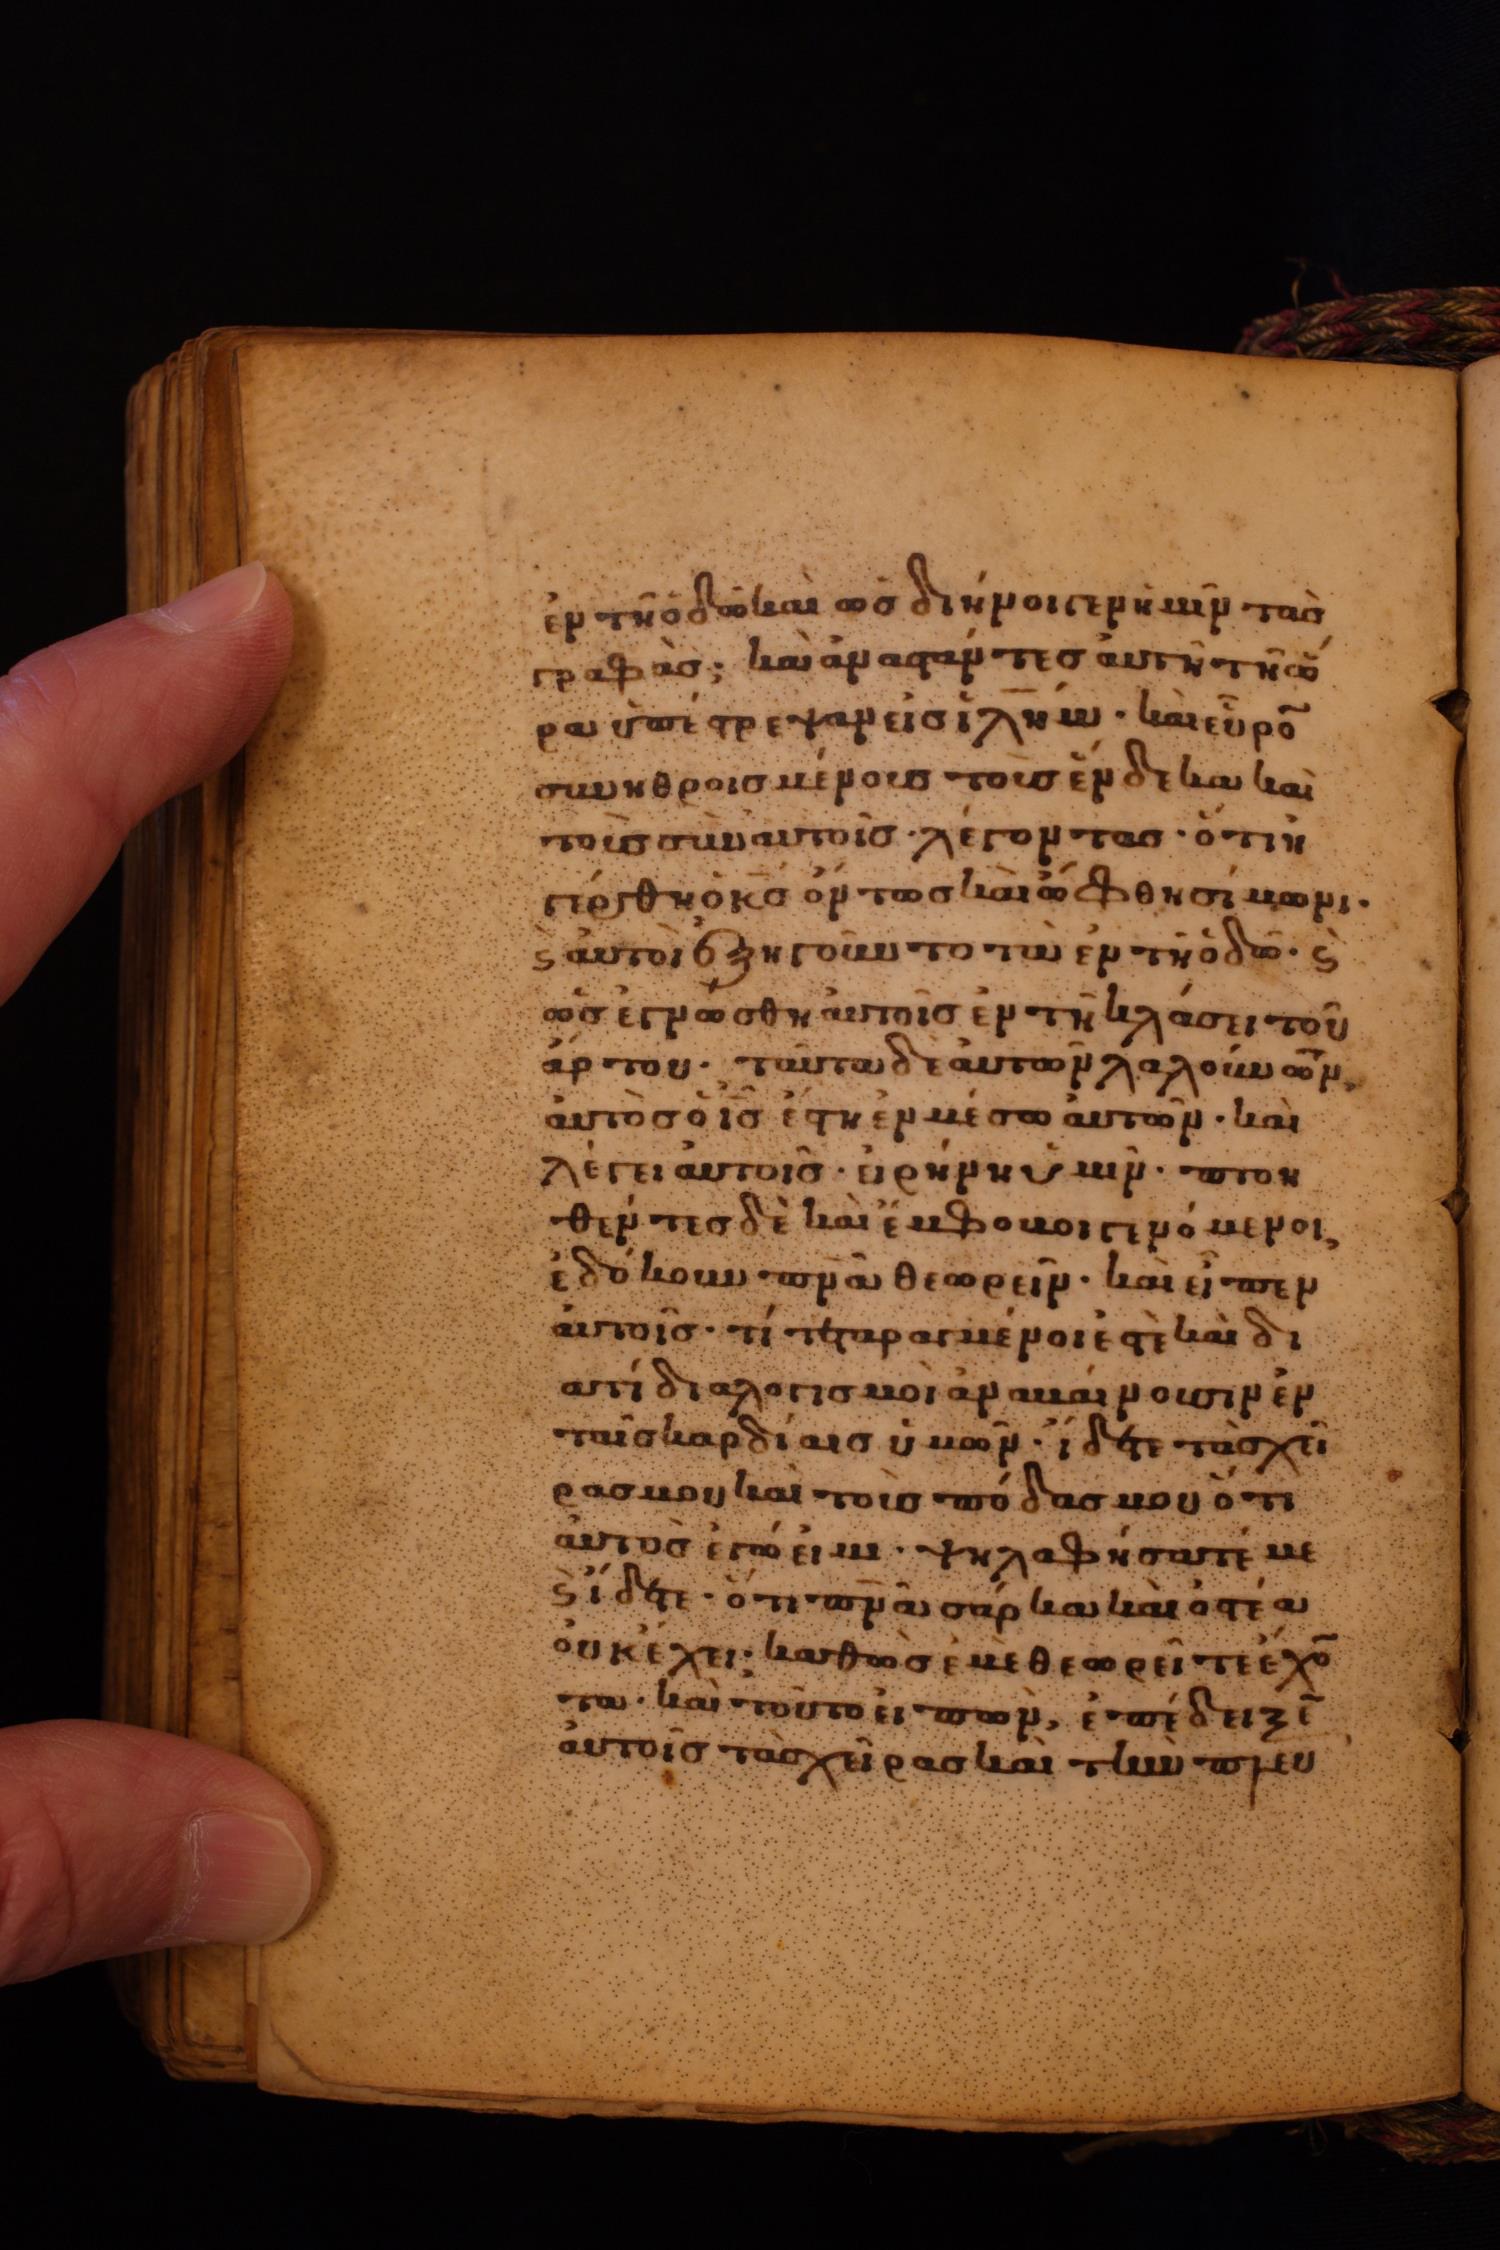 ἐν τῆ ὁδῶ καὶ ὡς διήνοιγεν ἡμῖν τὰς
γραφάς; καὶ ἀναστάντες αὐτῆ τῆ ὥ
ρα ὑπέστρεψαν εἰς ἱ̅λ̅ή̅μ̅· καὶ εὗρο̅
συνηθροισμένους τοὺς ἕνδεκα καὶ
τοὺς σὺν αὐτοῖς· λέγοντας· ὅτι ἠ
γέρθη ὁ κ̅ς̅ ὄντως καὶ ὤφθη σίμωνι·
ϗ αὐτοὶ ἐξηγοῦντο τὰ ἐν τῆ ὁδῶ· ϗ
ὡς ἐγνώσθη αὐτοῖς ἐν τῆ κλάσει τοῦ
ἄρτου· ταῦτα δὲ αὐτῶν λαλούντων,
αὐτὸς ὁ ι̅ς̅ ἔστη ἐν μέσω αὐτῶν· καὶ
λέγει αὐτοῖς· εἰρήνη ὑμῖν· πτοη
θέντες δὲ καὶ ἔμφοβοι γενόμενοι,
ἐδόκουν π̅ν̅α̅ θεωρεῖν· καὶ εἶπεν
αὐτοῖς· τί τεταραγμένοι ἐστὲ καὶ δι
ατί διαλογισμοὶ ἀναβαίνουσιν ἐν
ταῖς καρδίαις ὑμῶν· ἴδετε τὰς χεῖ
ρας μου καὶ τοὺς πόδας μου ὅτι
αὐτὸς ἐγώ εἰμι· ψηλαφήσατέ με
ϗ ἴδετε· ὅτι π̅ν̅α̅ σάρκα καὶ ὀστέα
οὐκ ἔχει· καθὼς ἐμὲ θεωρεῖτε ἔχο̅
τα· καὶ τοῦτο εἰπὼν, ἐπέδειξε̅
αὐτοῖς τὰς χεῖρας καὶ τὴν πλευ